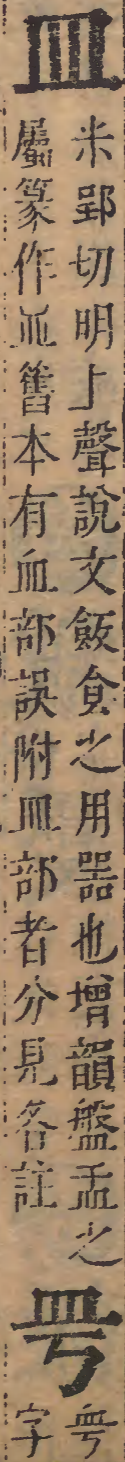 皿
米郢切明上聲說文飯食之用器也增韻盤盂之
屬篆作舊本有血部誤附皿部者分見各註
字